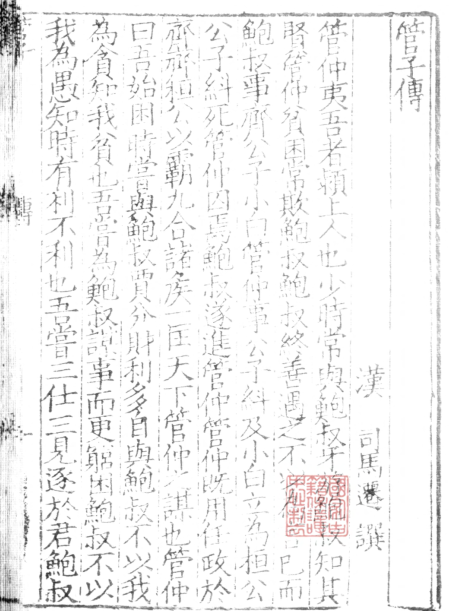 管子傳
漢 司馬遷 撰
管仲夷吾者頴上人也少時常與鮑叔牙叔知其
賢管仲貧困常欺鮑叔鮑叔終善遇之不已而
鮑叔事齊公子小白管仲事公子糾及小白立為桓公
公子糾死管仲囚焉鮑叔遂進管仲管仲既用任政於
齊齊桓公以霸九合諸侯一匡天下管仲之謀也管仲
曰吾始困時嘗與鮑叔賈分財利多自與鮑叔不以我
為貪知我貧也吾嘗為鮑叔謀事而更窮困鮑叔不以
我為愚知時有利不利也吾嘗三仕三見逐於君鮑叔